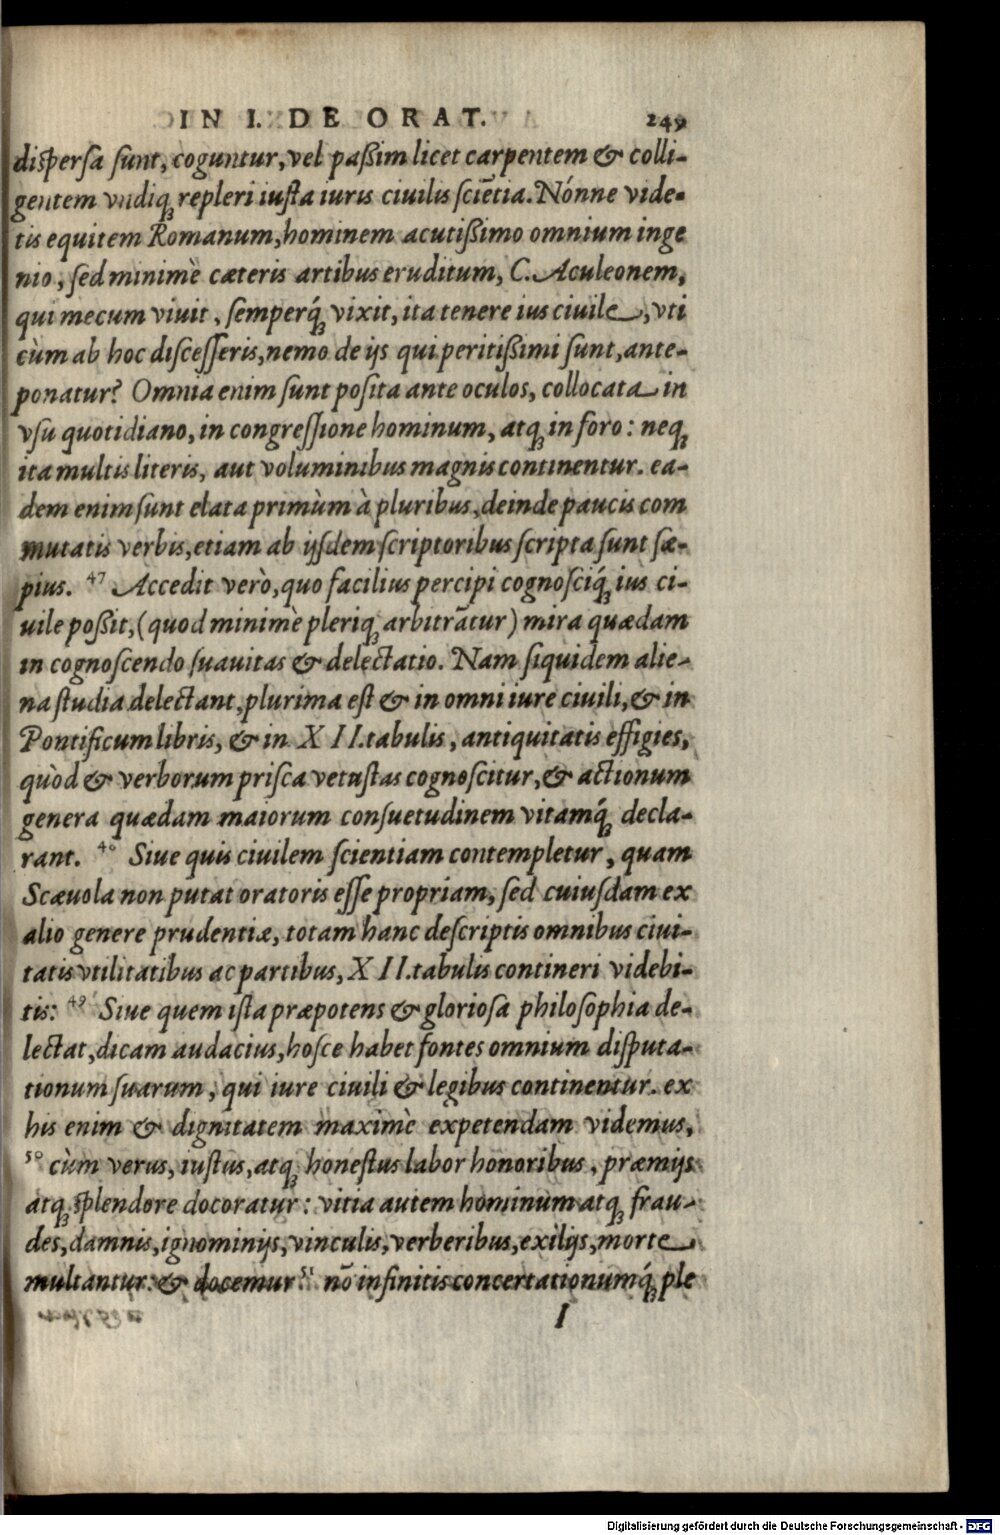 IN I. DE ORAT. 249
dispersa sunt, coguntur, vel paßim licet carpentem & colli-
gentem vndiq; repleri iusta iuris ciuilis sciētia. Nónne vide-
tis equitem Romanum, hominem acutißimo omnium inge
nio, sed minimè cæteris artibus eruditum, C. Aculeonem,
qui mecum viuit, semperq́; vixit, ita tenere ius ciuile, vti
cùm ab hoc discesseris, nemo de ijs qui peritißimi sunt, ante-
ponatur? Omnia enim sunt posita ante oculos, collocata in
vsu quotidiano, in congressione hominum, atq; in foro: neq;
ita multis literis, aut voluminibus magnis continentur. ea-
dem enim sunt elata primùm à pluribus, deinde paucis com
mutatis verbis, etiam ab ijsdem scriptoribus scripta sunt sæ-
pius. 47 Accedit verò, quo facilius percipi cognosciq́; ius ci-
uile poßit, (quod minimè pleriq; arbitrātur) mira quædam
in cognoscendo suauitas & delectatio. Nam siquidem alie-
na studia delectant, plurima est & in omni iure ciuili, & in
Pontificum libris, & in XII. tabulis, antiquitatis effigies,
quòd & verborum prisca vetustas cognoscitur, & actionum
genera quædam maiorum consuetudinem vitamq́; decla-
rant. 48 Siue quis ciuilem scientiam contempletur, quam
Scæuola non putat oratoris esse propriam, sed cuiusdam ex
alio genere prudentiæ, totam hanc descriptis omnibus ciui-
tatis vtilitatibus ac partibus, XII. tabulis contineri videbi-
tis: 49 Siue quem ista præpotens & gloriosa philosophia de-
lectat, dicam audacius, hosce habet fontes omnium disputa-
tionum suarum, qui iure ciuili & legibus continentur. ex
his enim & dignitatem maximè expetendam videmus,
50 cùm verus, iustus, atq; honestus labor honoribus, præmijs
atq; splendore docoratur: vitia autem hominum atq; frau-
des, damnis, ignominijs, vinculis, verberibus, exilijs, morte
multantur: & docemur 51 nō infinitis concertationumq́; ple
I
Digitalisierung gefördert durch die Deutsche Forschungsgemeinschaft - DFG